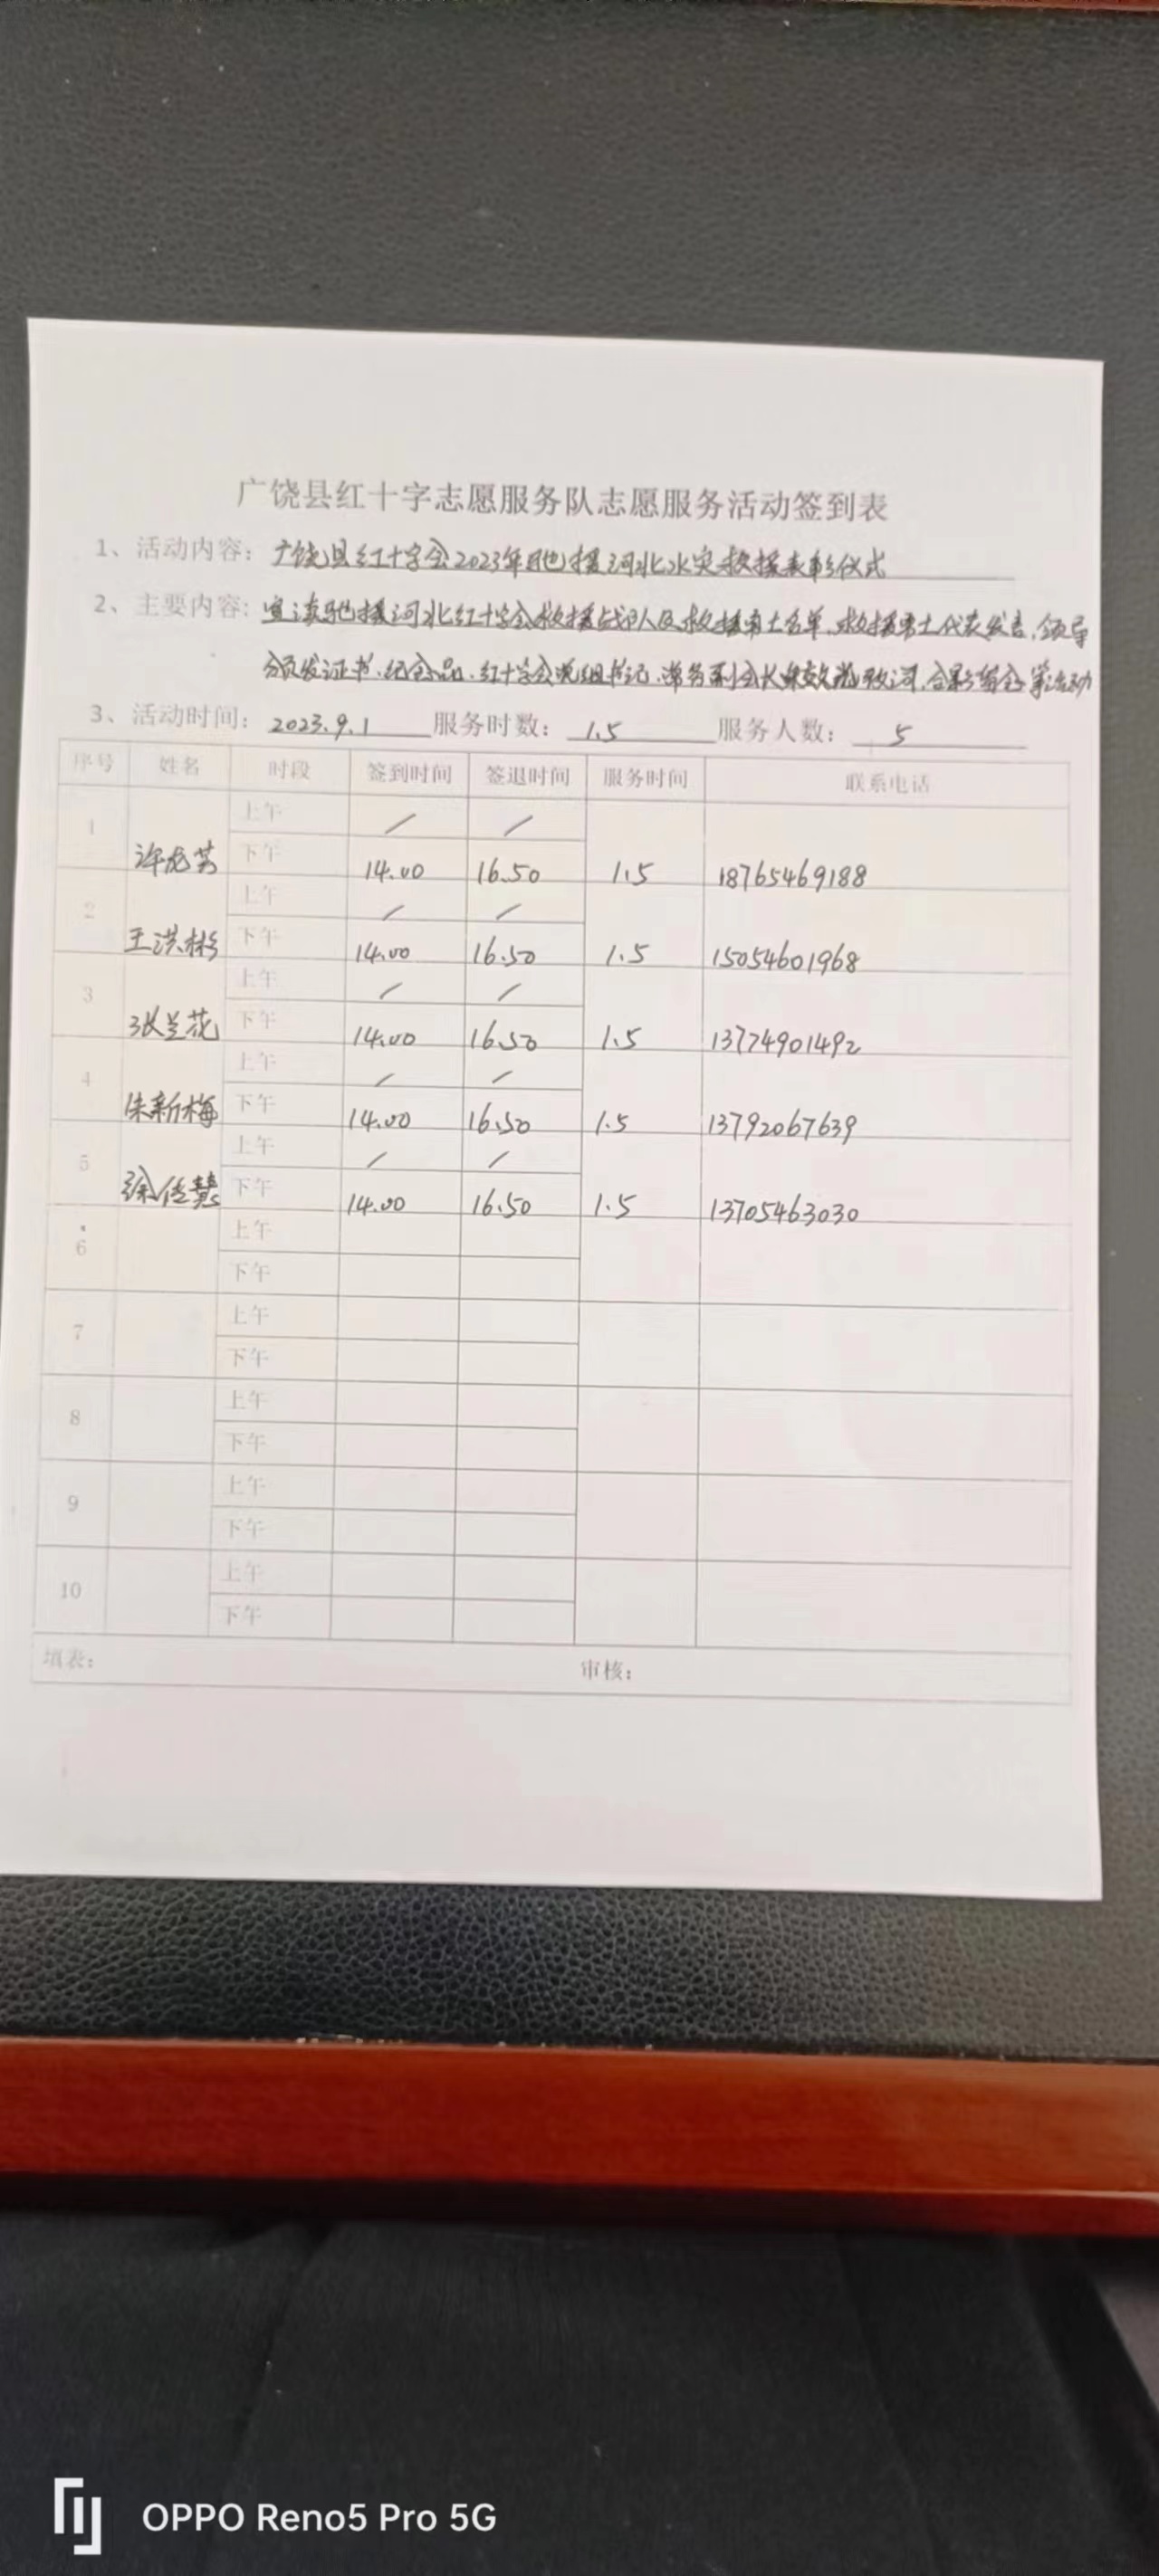 广饶县红十字志愿服务队志愿服务活动签到表
1、活动内容：广饶县红十字会2023年驰援河北水灾救援表彰仪式
2、主要内容：宣读驰援河北红十字会救援战队及救援勇士名单、救援勇士代表发言，领导
颁发证书、纪念品、红十字会党组书记、常务副会长致词，合影留念等活动
3、活动时间：2023.9.1 服务时数：1.5 服务人数：5
序号 姓名 时段 签到时间 签退时间 服务时间 联系电话
1 上午 / /
下午 14.00 16.50 1.5 18765469188
2 上午 / /
王洪彬 下午 14.00 16.50 1.5 15054601968
3 上午 / /
张兰花 下午 14.00 16.50 1.5 13774901492
4 上午 / /
朱新梅 下午 14.00 16.50 1.5 13792067639
5 上午 / /
徐佳慧 下午 14.00 16.50 1.5 13705463030
6 上午
下午
7 上午
下午
8 上午
下午
9 上午
下午
10 上午
下午
填表： 审核：
OPPO Reno5 Pro 5G